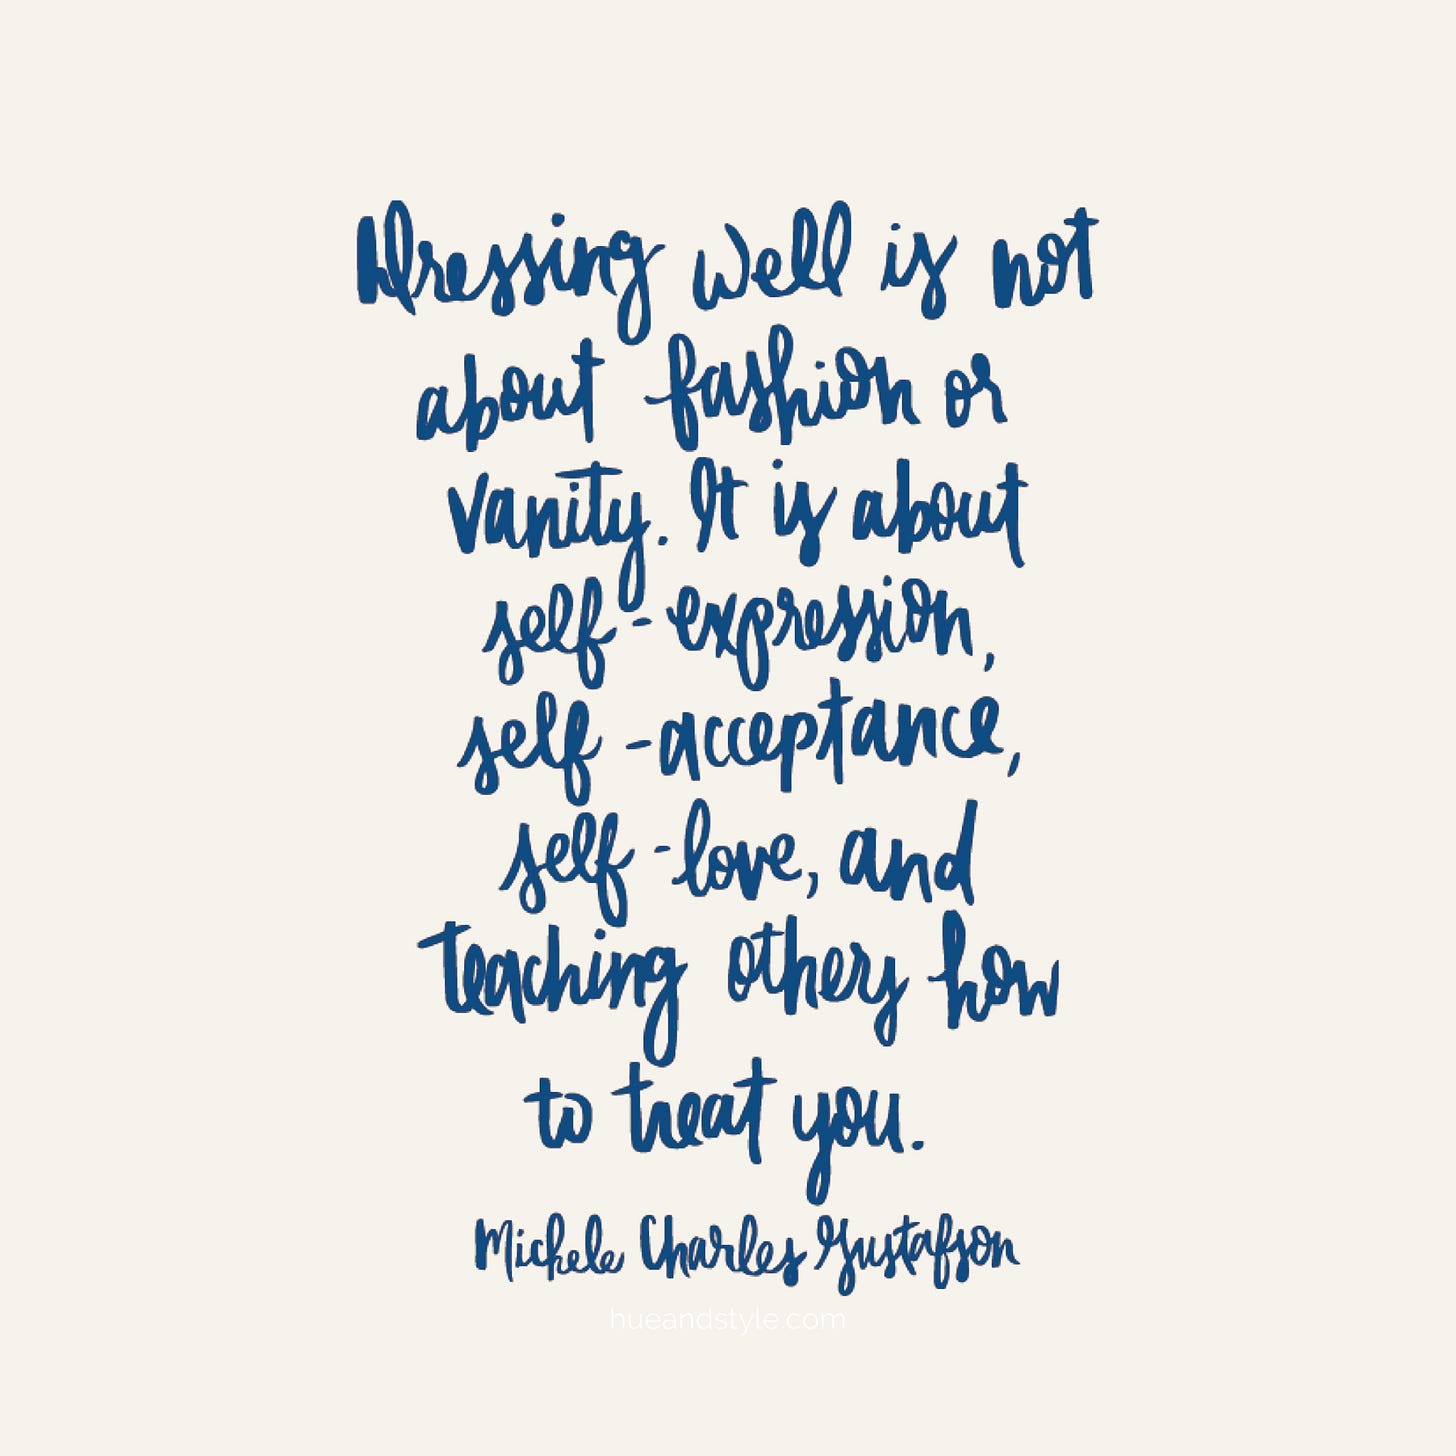 Dressing well is not
about fashion or
vanity. It is about
self-expression,
self-acceptance,
self-love, and
teaching others how
to treat you.
Michele Charles Gustafson
hueandstyle.com